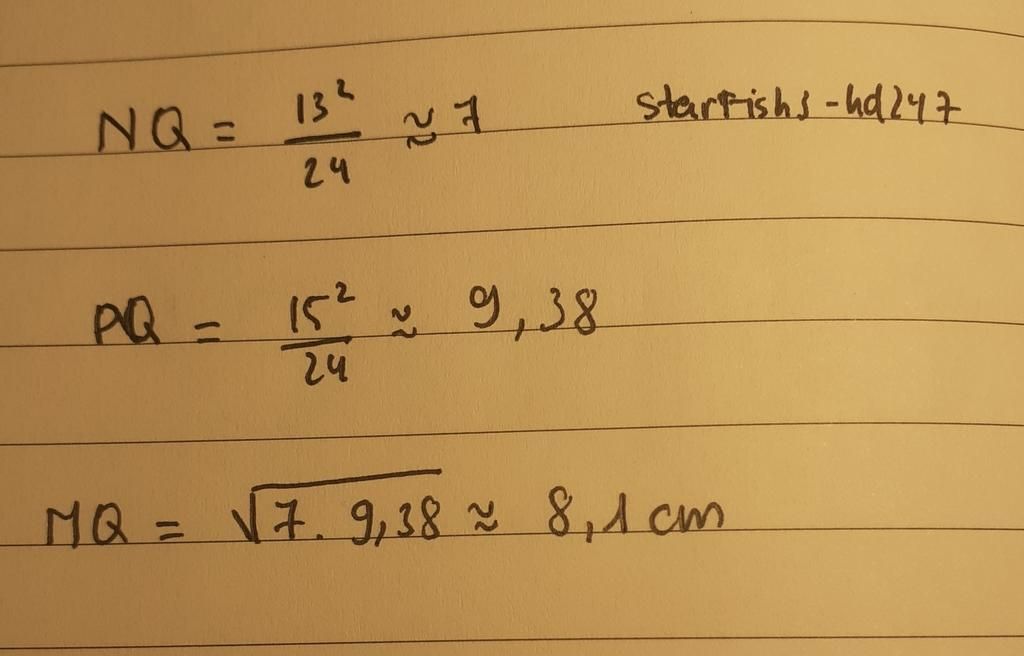 NQ = 13² / 24 ≈ 7
starfish1-hd247
PQ = 15² / 24 ≈ 9,38
MQ = √7. 9,38 ≈ 8,1 cm